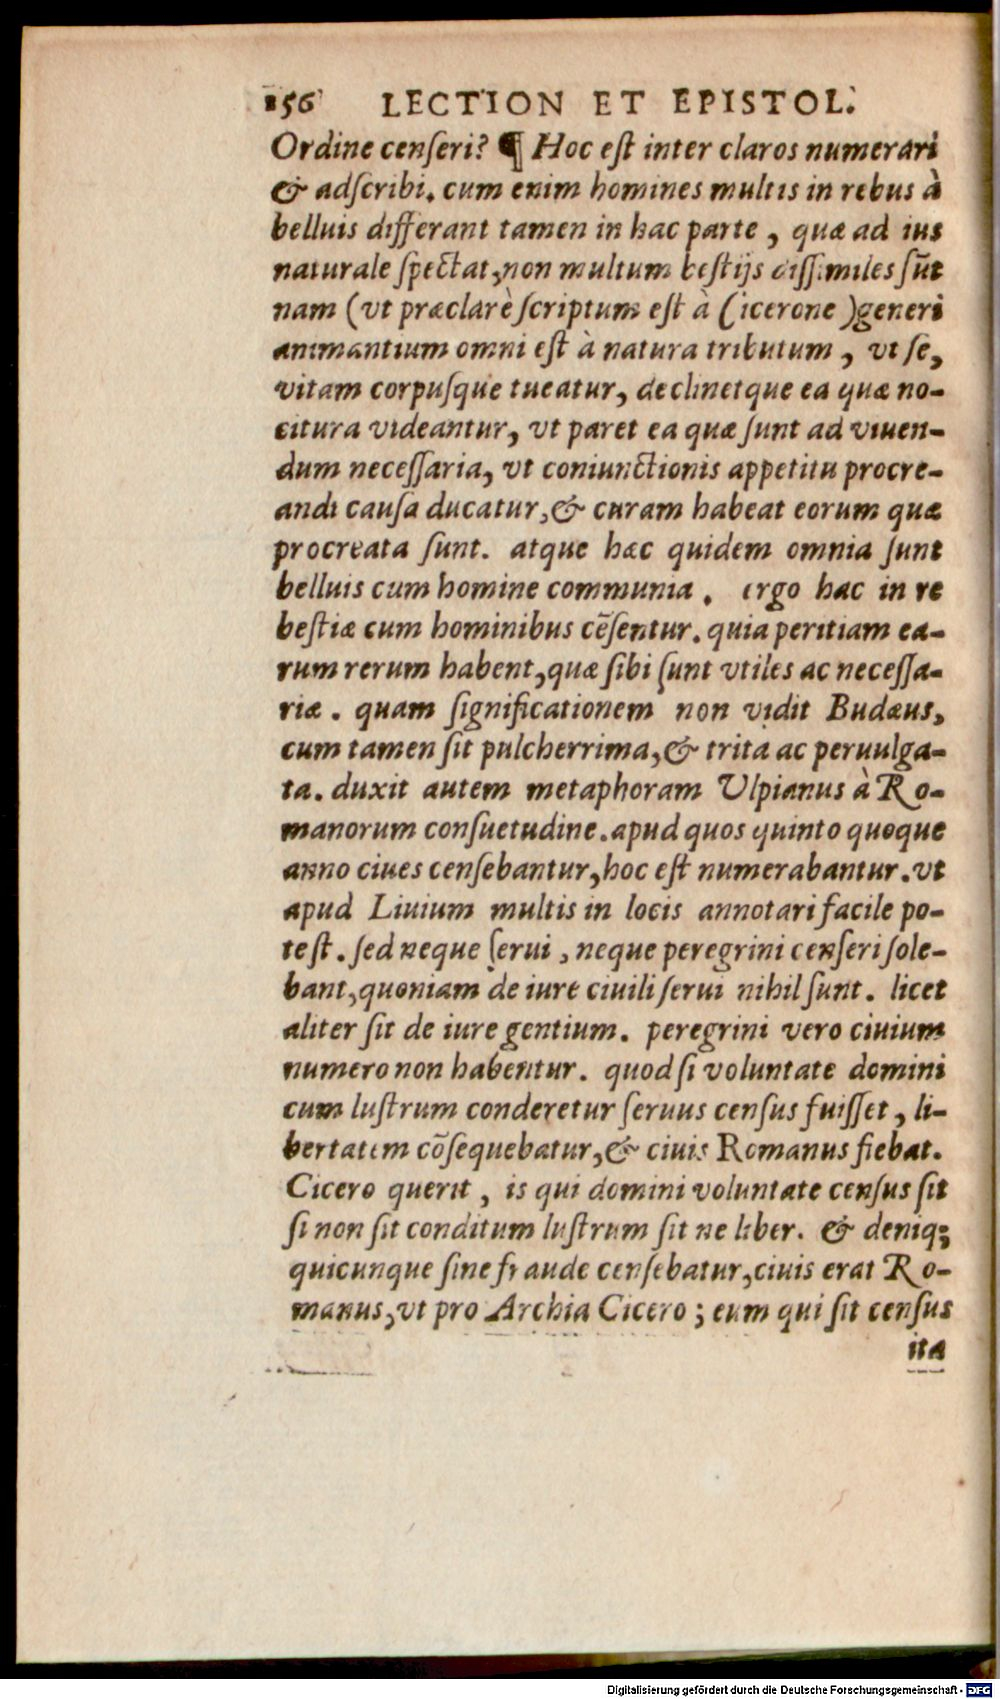 156 LECTION ET EPISTOL.
Ordine cenſeri? ¶ Hoc eſt inter claros numerari
& adſcribi. cum enim homines multis in rebus à
belluis differant tamen in hac parte, quæ ad ius
naturale ſpectat, non multum beſtijs diſſimiles sūt
nam (vt præclarè ſcriptum eſt à Cicerone) generi
animantium omni eſt à natura tributum, vt ſe,
vitam corpuſque tueatur, declinetque ea quæ no-
citura videantur, vt paret ea quæ ſunt ad viuen-
dum neceſſaria, vt coniunctionis appetitu procre-
andi cauſa ducatur, & curam habeat eorum quæ
procreata ſunt. atque hæc quidem omnia ſunt
belluis cum homine communia. ergo hac in re
beſtiæ cum hominibus cēſentur. quia peritiam ea-
rum rerum habent, quæ ſibi ſunt vtiles ac neceſſa-
riæ. quam ſignificationem non vidit Budæus,
cum tamen ſit pulcherrima, & trita ac peruulga-
ta. duxit autem metaphoram Ulpianus à Ro-
manorum conſuetudine. apud quos quinto quoque
anno ciues cenſebantur, hoc eſt numerabantur. vt
apud Liuium multis in locis annotari facile po-
teſt. ſed neque ſerui, neque peregrini cenſeri ſole-
bant, quoniam de iure ciuili ſerui nihil ſunt. licet
aliter ſit de iure gentium. peregrini vero ciuium
numero non habentur. quod ſi voluntate domini
cum luſtrum conderetur ſeruus cenſus fuiſſet, li-
bertatem cōſequebatur, & ciuis Romanus fiebat.
Cicero querit, is qui domini voluntate cenſus ſit
ſi non ſit conditum luſtrum ſit ne liber. & deniq;
quicunque ſine fraude cenſebatur, ciuis erat Ro-
manus, vt pro Archia Cicero; eum qui ſit cenſus
ita
Digitalisierung gefördert durch die Deutsche Forschungsgemeinschaft - DFG